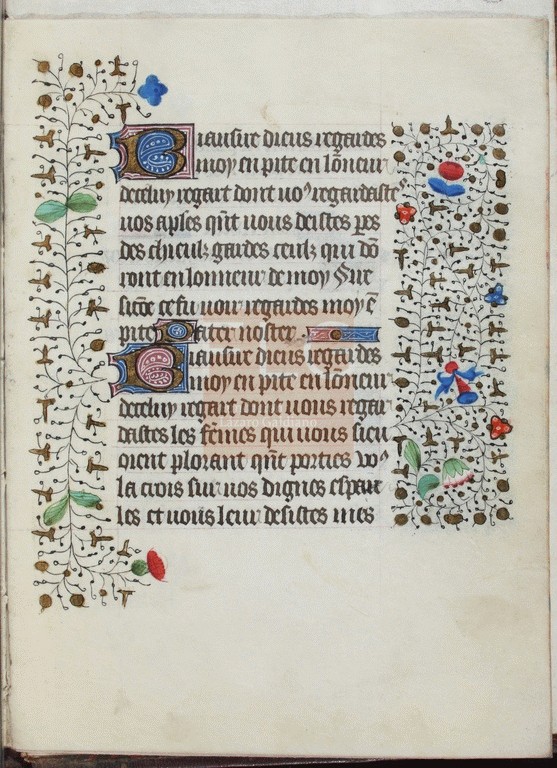 Biausire dieus regardes
moy en pite en lõneur
de celuy regart dont uoꝰ regardastes
uos aples qñt uous deistes pes
des chieulz gardes ceulz qui dõ
ront en lonneur de moy Sire
sicõe ce fu uoir regardes moy ẽ
pite Pater noster
Biausire dieus regardes
moy en pite en lonneur
de celuy regart dont uous regar
dastes les fẽmes qui uous sieu
oient plorant qñt porties voꝰ
la crois sur uos dignes espau
les et uous leur desistes mes
Lázaro Galdiano